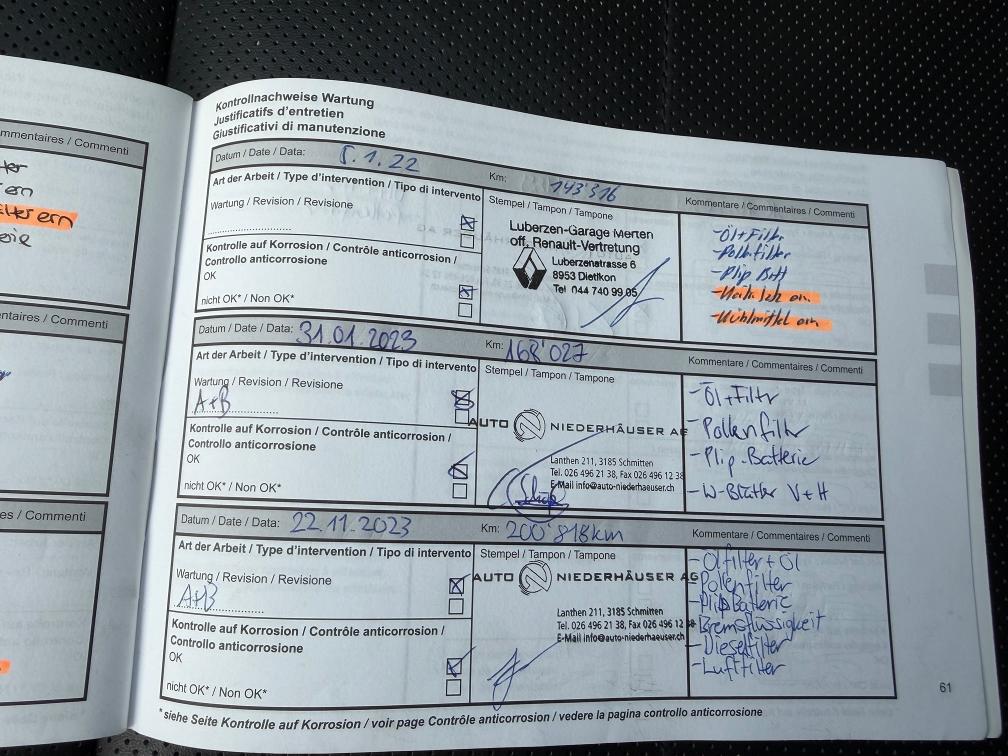 mmentaires / Commenti
Kontrollnachweise Wartung
Justificatifs d'entretien
Giustificativi di manutenzione
Datum / Date / Data: 5.1.22 Km: 143'316
Art der Arbeit / Type d'intervention / Tipo di intervento
Wartung / Revision / Revisione
Kontrolle auf Korrosion / Contrôle anticorrosion /
Controllo anticorrosione
OK
nicht OK* / Non OK*
Stempel / Tampon / Tampone
Luberzen-Garage Merten
off. Renault-Vertretung
Luberzenstrasse 6
8953 Dietikon
Tel 044 740 99 05
Kommentare / Commentaires / Commenti
-Öl+Filter
-Pollenfilter
-Plip Batt
-Kühlmittel ern
ntaires / Commenti
Datum / Date / Data: 31.01.2023 Km: 168'027
Art der Arbeit / Type d'intervention / Tipo di intervento
Wartung / Revision / Revisione
A+B
Kontrolle auf Korrosion / Contrôle anticorrosion /
Controllo anticorrosione
OK
nicht OK* / Non OK*
Stempel / Tampon / Tampone
AUTO NIEDERHÄUSER AG
Lanthen 211, 3185 Schmitten
Tel. 026 496 21 38, Fax 026 496 12 38
E-Mail info@auto-niederhaeuser.ch
Kommentare / Commentaires / Commenti
-Öl+Filter
-Pollenfilter
-Plip-Batterie
-W-Blätter V+H
es / Commenti
Datum / Date / Data: 22.11.2023 Km: 200'818km
Art der Arbeit / Type d'intervention / Tipo di intervento
Wartung / Revision / Revisione
A+B
Kontrolle auf Korrosion / Contrôle anticorrosion /
Controllo anticorrosione
OK
nicht OK* / Non OK*
Stempel / Tampon / Tampone
AUTO NIEDERHÄUSER AG
Lanthen 211, 3185 Schmitten
Tel. 026 496 21 38, Fax 026 496 12 38
E-Mail info@auto-niederhaeuser.ch
Kommentare / Commentaires / Commenti
-Ölfilter+Öl
-Pollenfilter
-Plip Batterie
-Bremsflüssigkeit
-Dieselfilter
-Luftfilter
*siehe Seite Kontrolle auf Korrosion / voir page Contrôle anticorrosion / vedere la pagina controllo anticorrosione
61